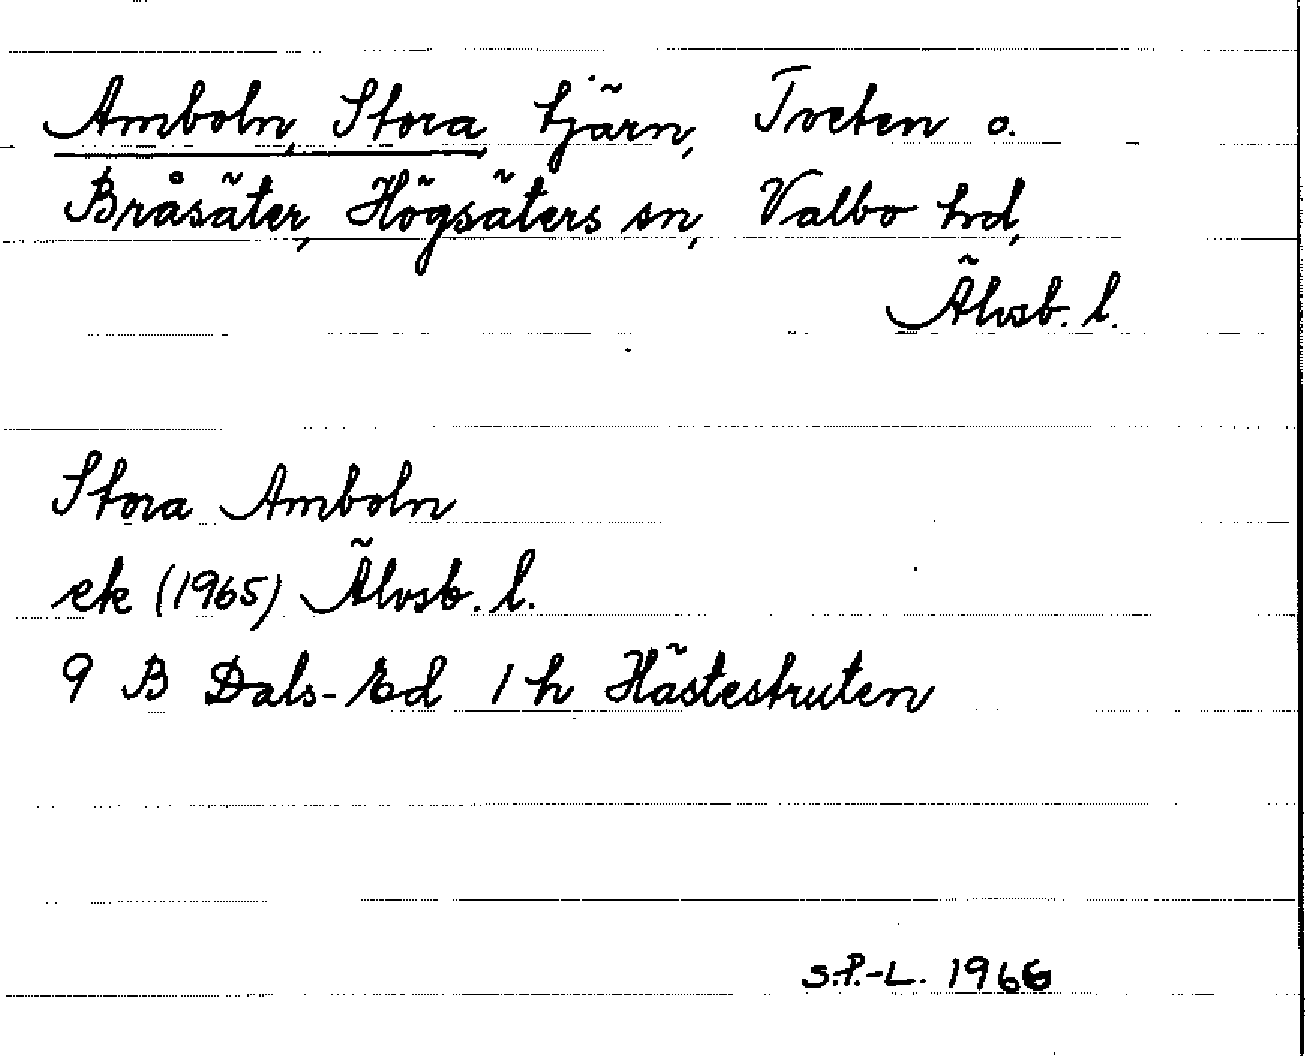 Amboln, Stora tjärn, Tveten o.
Bråsäter, Högsäters sn, Valbo hd,
Älvsb. l.
Stora Amboln
ek (1965) Älvsb. l.
9 B Dals-Ed 1 h Hästestruten
S.P.-L. 1966